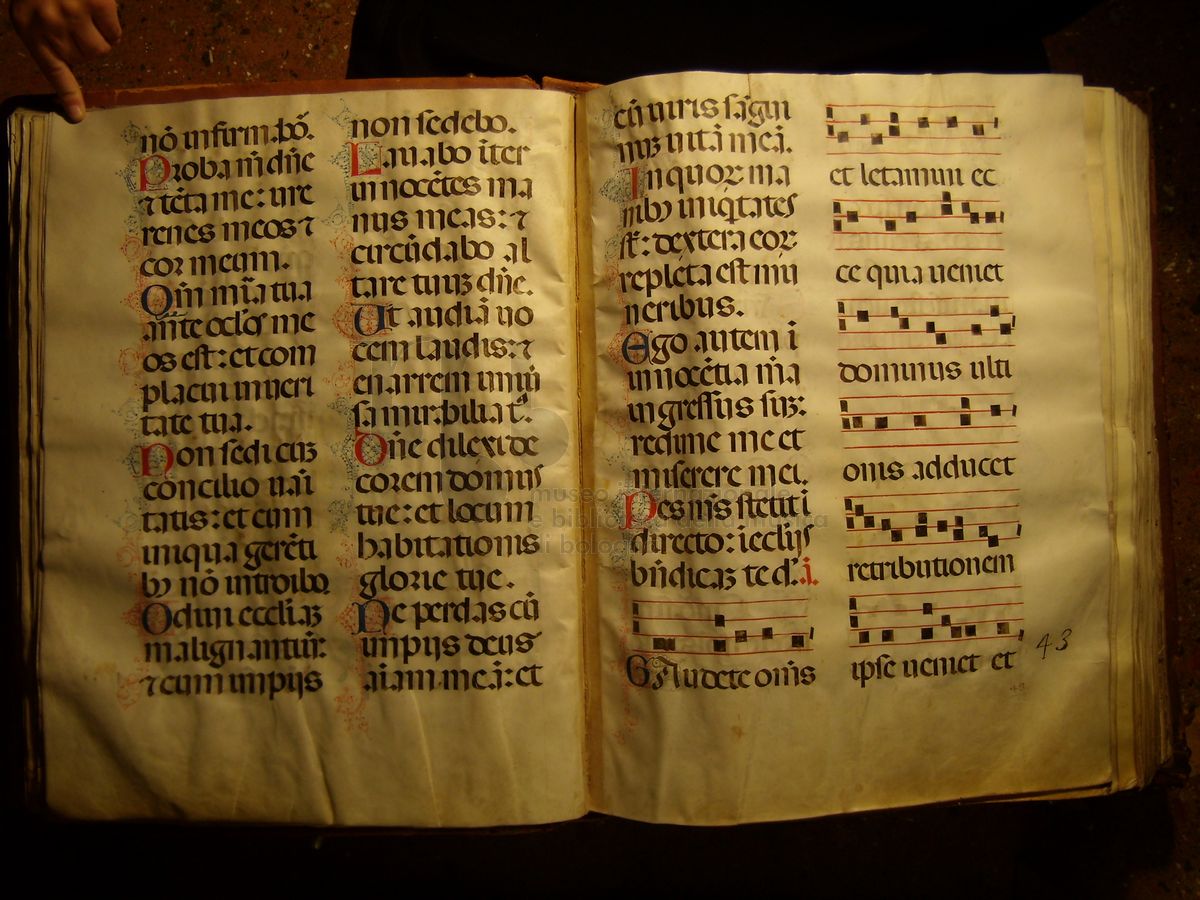 nō infirmabō.
Proba m̄ dn̄e
⁊ tēta me: ure
renes meos ⁊
cor meum.
Qm̄ mīa tua
ante oclōs me
os est: et com
placui in ueri
tate tua.
Non sedi cuꝫ
concilio uani
tatis: et cum
iniqua gerēti
bꝫ nō introibo.
Odiui eccliaꝫ
malignantiū:
⁊ cum impijs
non sedebo.
Lauabo īter
innocētes ma
nus meas: ⁊
circūdabo al
tare tuuꝫ dn̄e.
Ut audiā uo
cem laudis: ⁊
enarrem uniū
sa mirabilia t̄.
Dn̄e dilexi de
corem domus
tue: et locum
habitationis
glorie tue.
Ne perdas cū
impijs deus
aiam meā: et
cū uiris sāgui
nuꝫ uitā meā.
In quoꝝ ma
nibꝫ iniq̄tates
st̄: dextera eoꝝ
repleta est mu
neribus.
Ego autem ī
innocētia m̄a
ingressus suꝫ:
redime me et
miserere mei.
Pes m̄s stetit ī
directo: ī eccl̄ijs
bn̄dicaꝫ te d̄.
Gaudete om̄s
et letamini ec
ce quia ueniet
dominus ulti
onis adducet
retributionem
ipse ueniet et
43
museo internazionale
e biblioteca della musica
di bologna